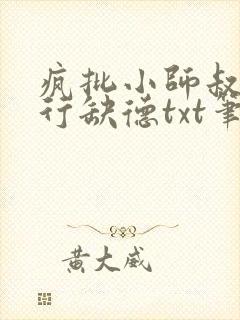 疯批小师叔
行缺德txt笔
黄大威